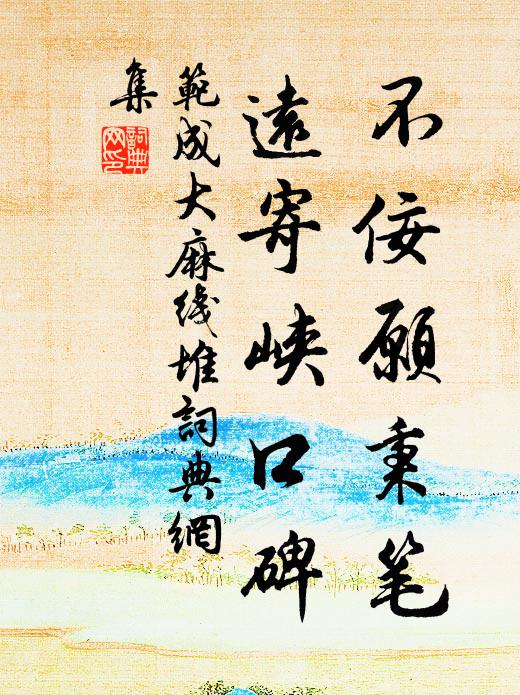 不佞願秉笔
遠寄峡口碑
範成大麻线堆詞典網
集
詞典
网印